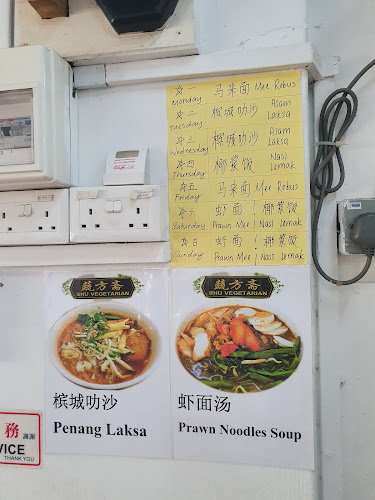 每一 马来面 Mee Rebus
Monday
每二 槟城叻沙 Asam
Tuesday Laksa
每三 槟城叻沙 Asam
Wednesday Laksa
每四 椰浆饭 Nasi
Thursday Lemak
每五 马来面 Mee Rebus
Friday
每六 虾面 / 椰浆饭
Saturday Prawn Mee / Nasi Lemak
每日 虾面 / 椰浆饭
Sunday Prawn Mee / Nasi Lemak
蔬方斋
SHU VEGETARIAN
槟城叻沙
Penang Laksa
蔬方斋
SHU VEGETARIAN
虾面汤
Prawn Noodles Soup
務 謝謝
VICE THANK YOU